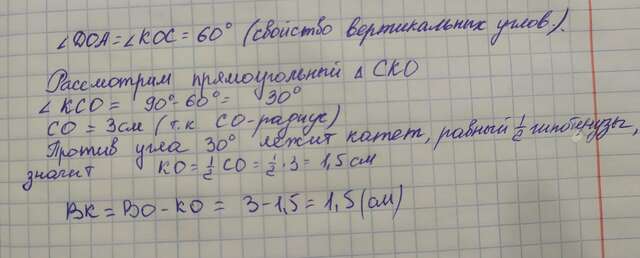 ∠DOA = ∠KOC = 60° (свойство вертикальных углов).
Рассмотрим прямоугольный △ CKO
∠ KCO = 90° - 60° = 30°
CO = 3 см (т.к CO - радиус)
Против угла 30° лежит катет, равный 1/2 гипотенузы,
значит KO = 1/2 CO = 1/2 · 3 = 1,5 см
BK = BO - KO = 3 - 1,5 = 1,5 (см)